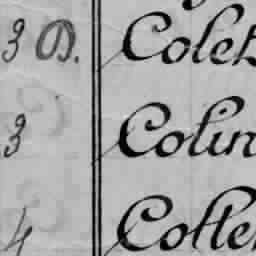 3 D. Colet
3 Colin
4 Coller